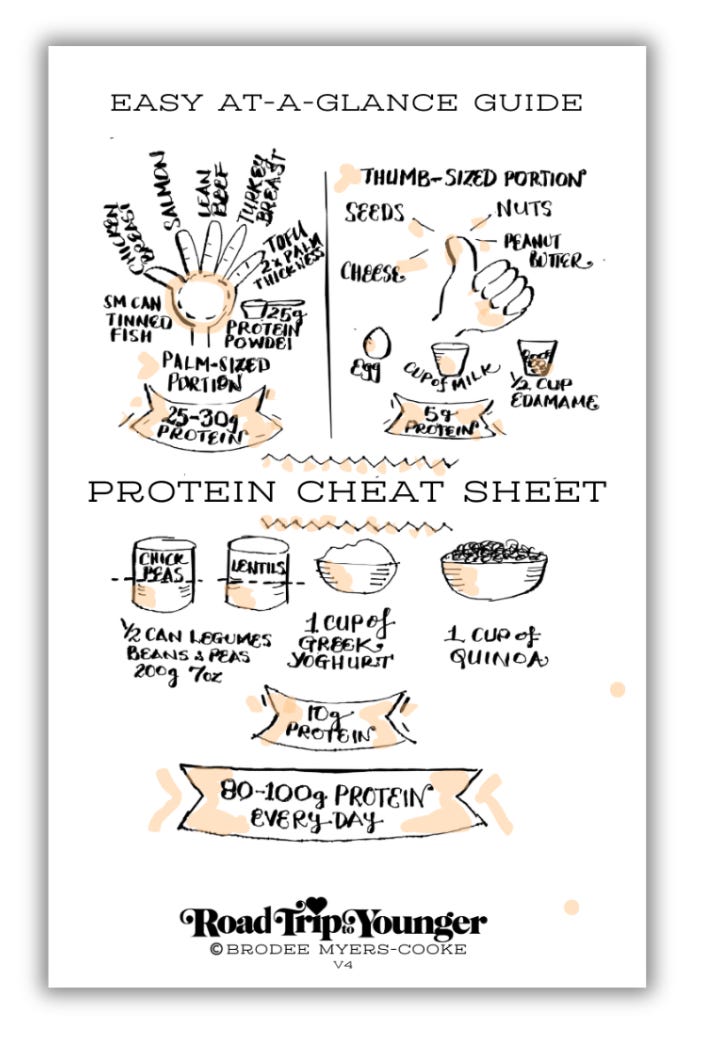 EASY AT-A-GLANCE GUIDE
CHICKEN
BREAST
SALMON
LEAN
BEEF
TURKEY
BREAST
TOFU
2x PALM
THICKNESS
SM CAN
TINNED
FISH
125g
PROTEIN
POWDER
PALM-SIZED
PORTION
25-30g
PROTEIN
THUMB-SIZED PORTION
SEEDS
NUTS
CHEESE
PEANUT
BUTTER
Egg
CUP of MILK
1/2 CUP
EDAMAME
5g
PROTEIN
PROTEIN CHEAT SHEET
CHICK
PEAS
LENTILS
1/2 CAN LEGUMES
BEANS & PEAS
200g 7oz
1 CUP of
GREEK
YOGHURT
1 CUP of
QUINOA
10g
PROTEIN
80-100g PROTEIN
EVERY DAY
Road Trip to Younger
© BRODEE MYERS-COOKE
V4